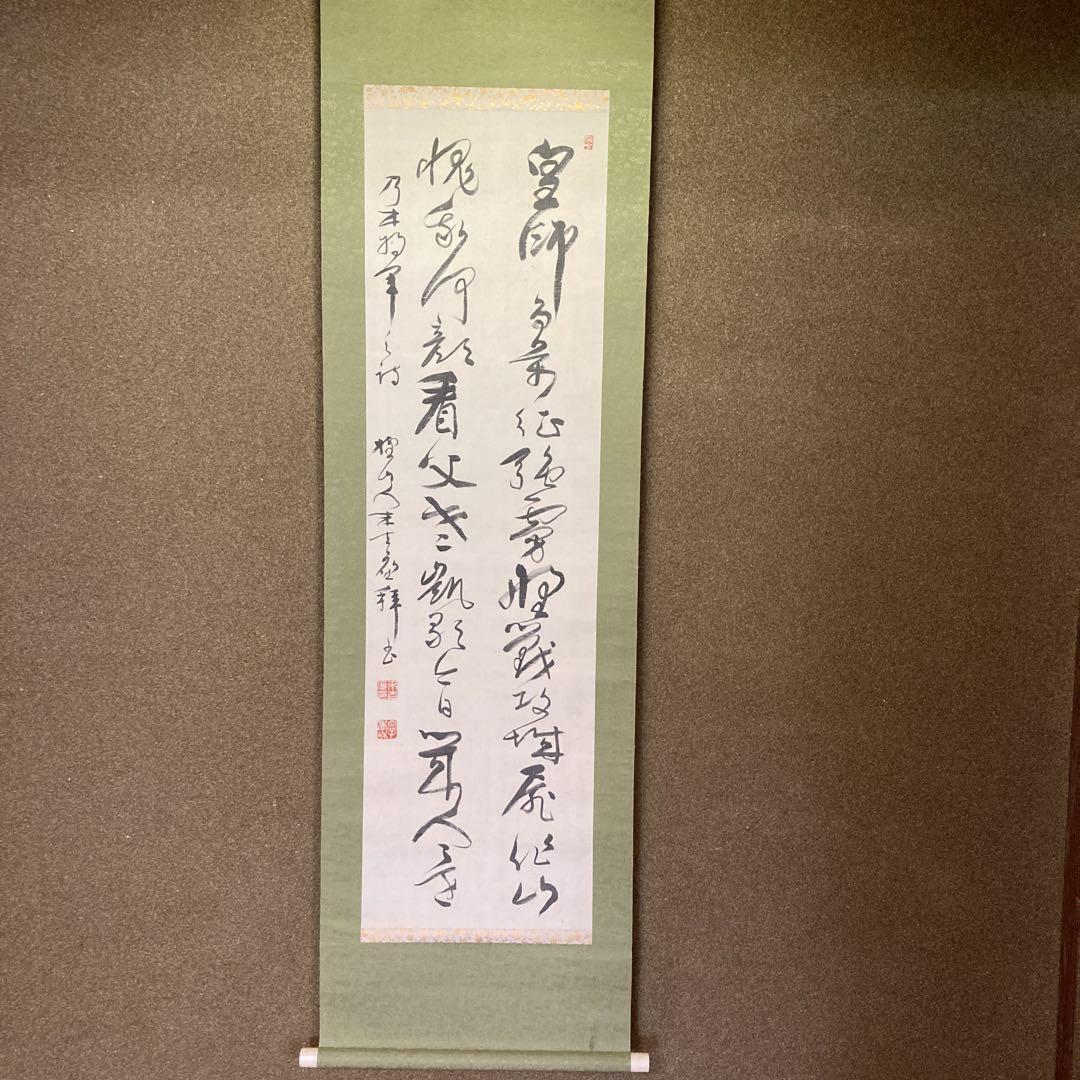 皇師百萬征強虜野戰攻城屍作山
愧我何顔看父老凱歌今日幾人還
乃木将軍之詩 山人 拝書